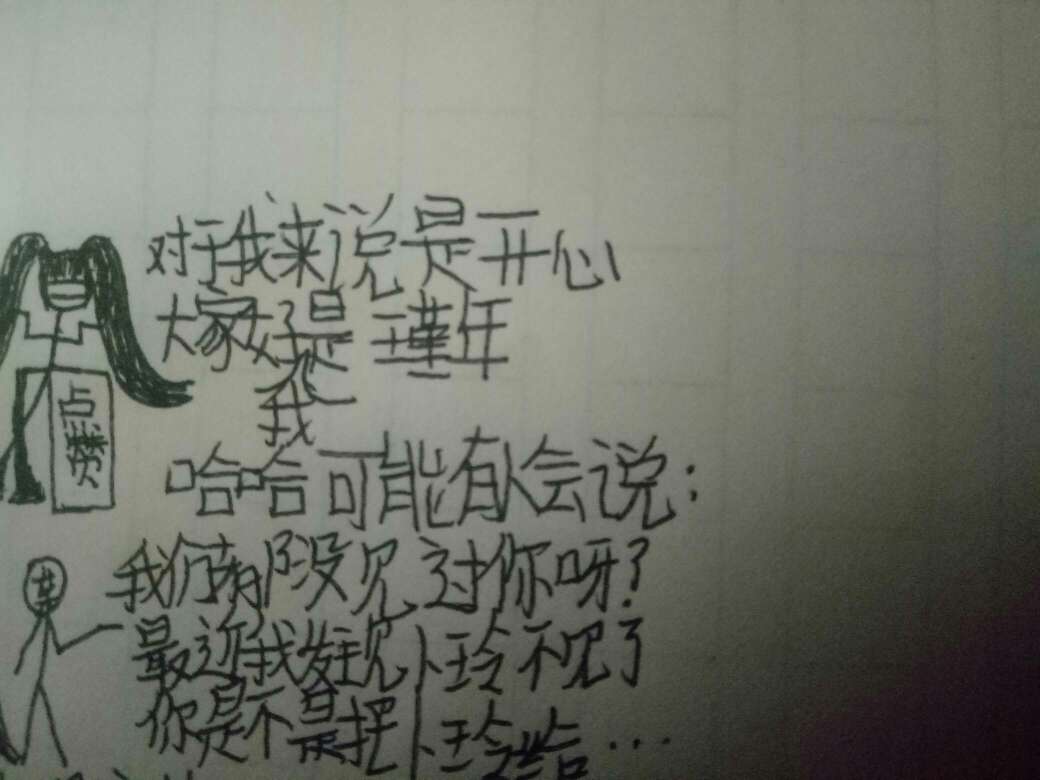 对于我来说是开心
大家好是瑾年
我
点赞
哈哈可能有人会说：
我们有没见过你呀？
最近我发现小玲不见了
你是不是把小玲给...